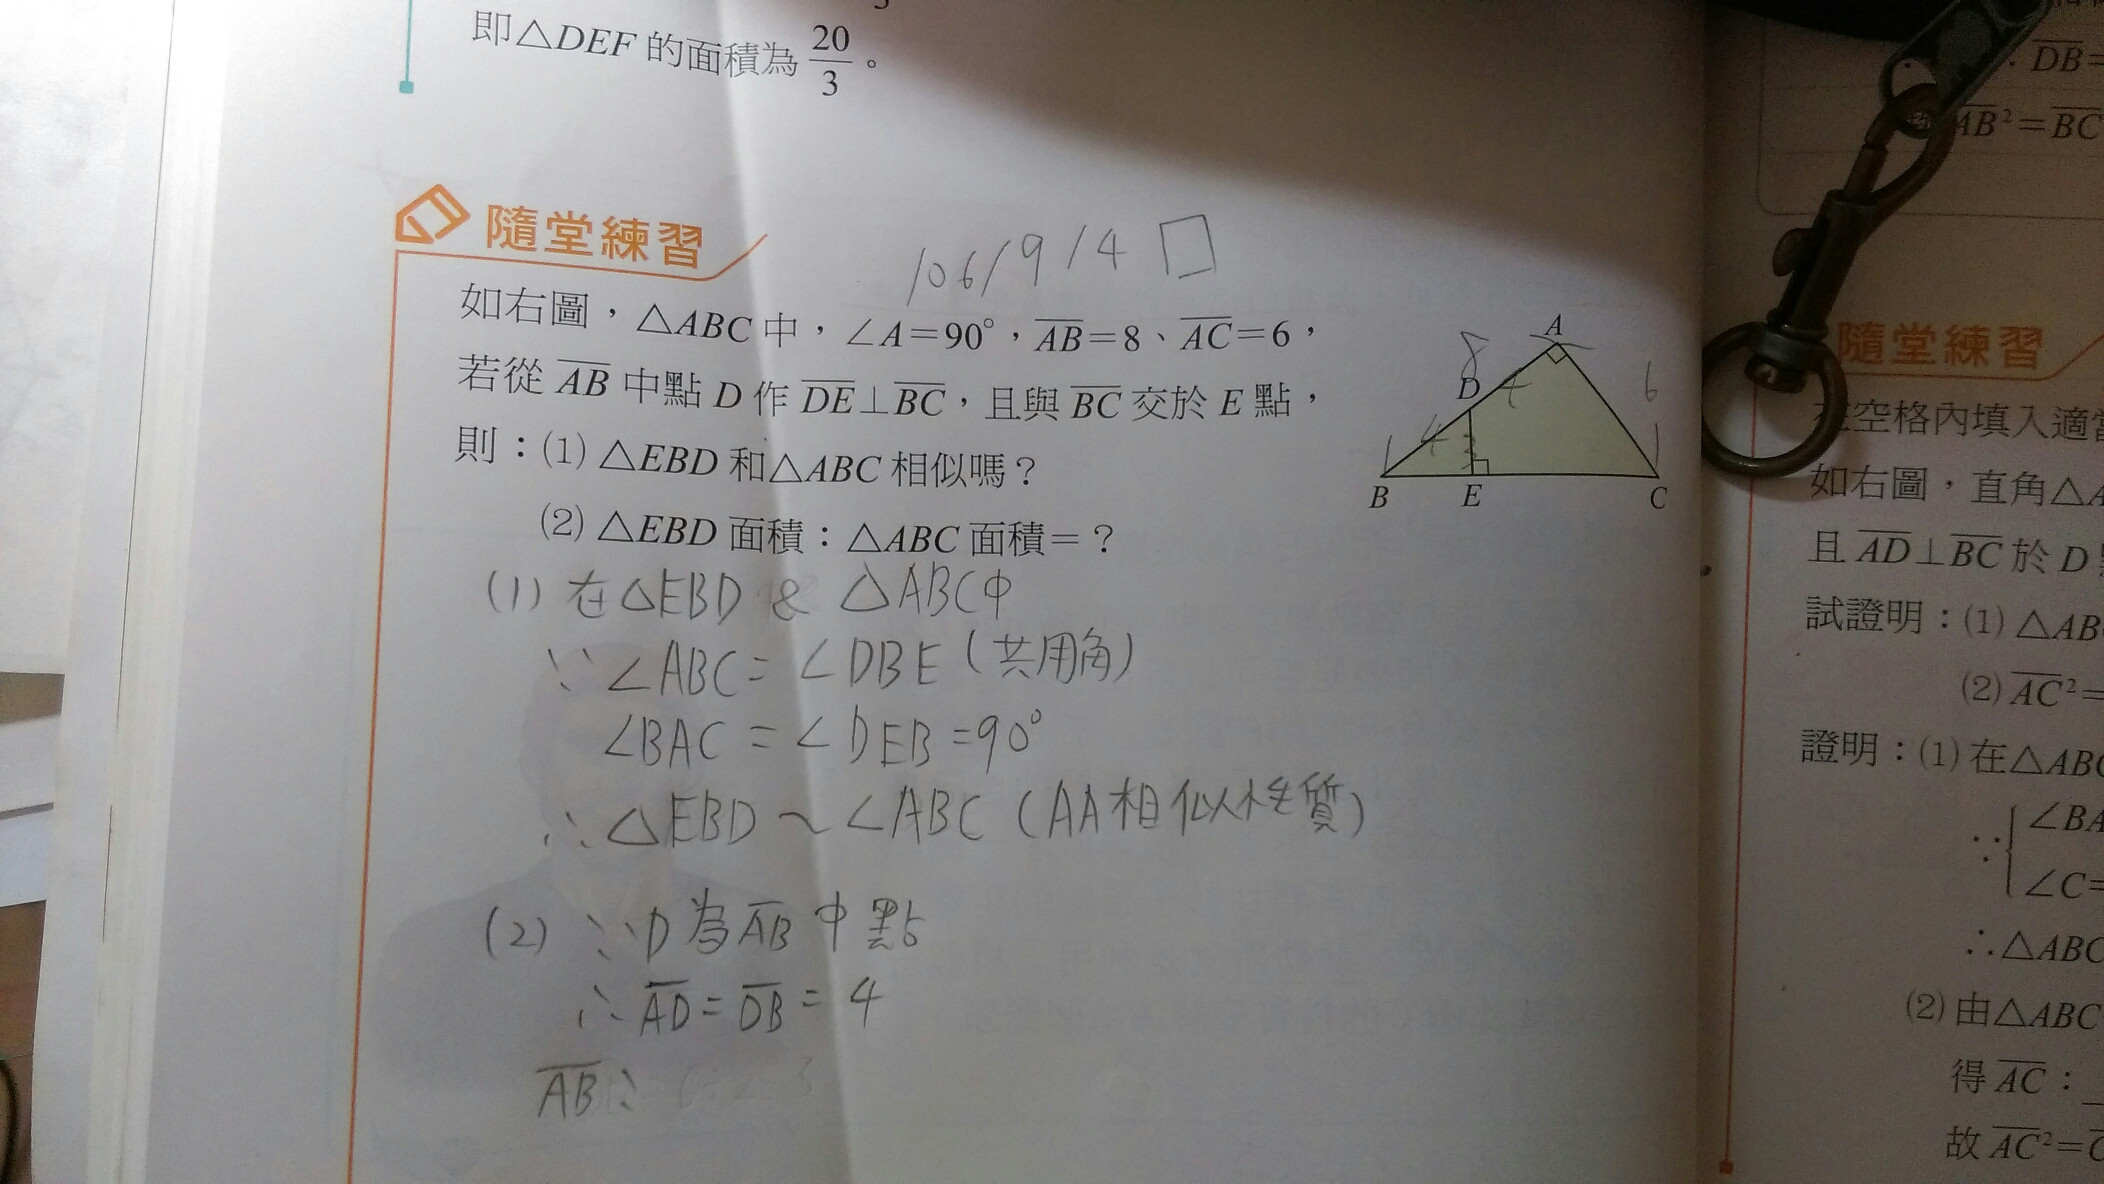 即△DEF 的面積為 20/3。
隨堂練習
106/9/14 □
如右圖，△ABC 中，∠A=90°，AB=8、AC=6，
若從 AB 中點 D 作 DE⊥BC，且與 BC 交於 E 點，
則：(1) △EBD 和△ABC 相似嗎？
(2) △EBD 面積：△ABC 面積=？
A
8
D
4
6
4
3
B
E
C
(1) 在△EBD & △ABC中
∵ ∠ABC = ∠DBE (共用角)
∠BAC = ∠DEB =90°
∴ △EBD ~ ∠ABC (AA相似性質)
(2) ∵D為AB中點
∴ AD = DB = 4
AB:
DB=
AB²=BC
隨堂練習
在空格內填入適當
如右圖，直角△A
且 AD⊥BC 於 D
試證明：(1) △AB
(2) AC²=
證明：(1) 在△ABC
∵ ∠BA
∠C=
∴△ABC
(2) 由△ABC
得 AC：
故 AC²=C